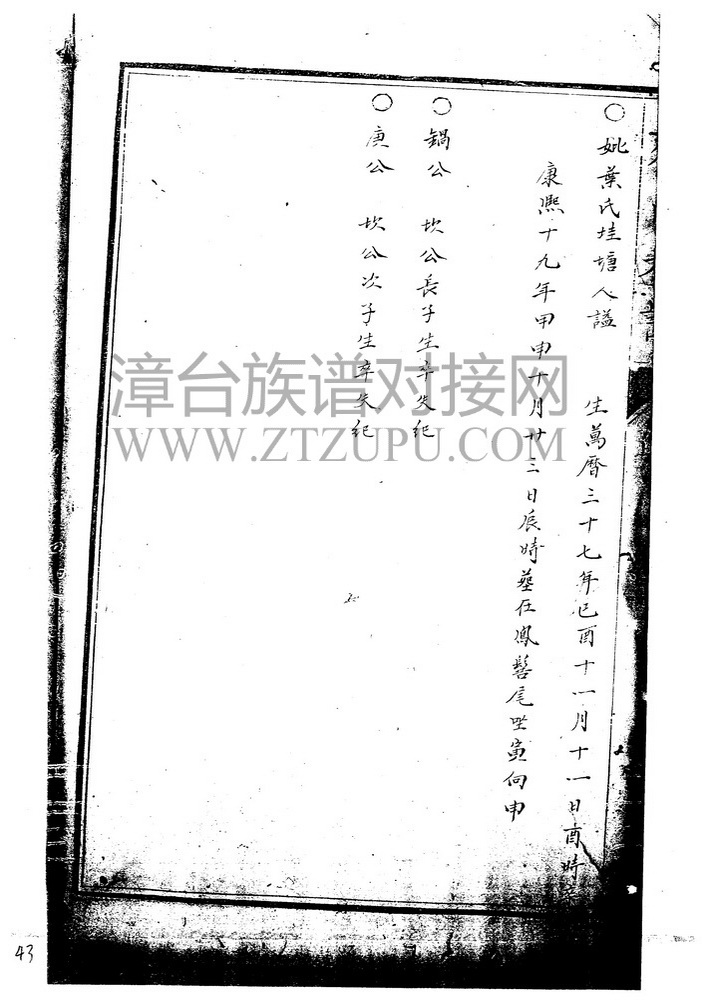 ○妣葉氏垅塘人謚 生萬曆三十七年己酉十一月十一日酉時
康熙十九年甲申十月廿三日辰時葬在鳳髻尾坐寅向申
○鍋公 坎公長子生卒失紀
○庚公 坎公次子生卒失紀
漳台族谱对接网
WWW.ZTZUPU.COM
43